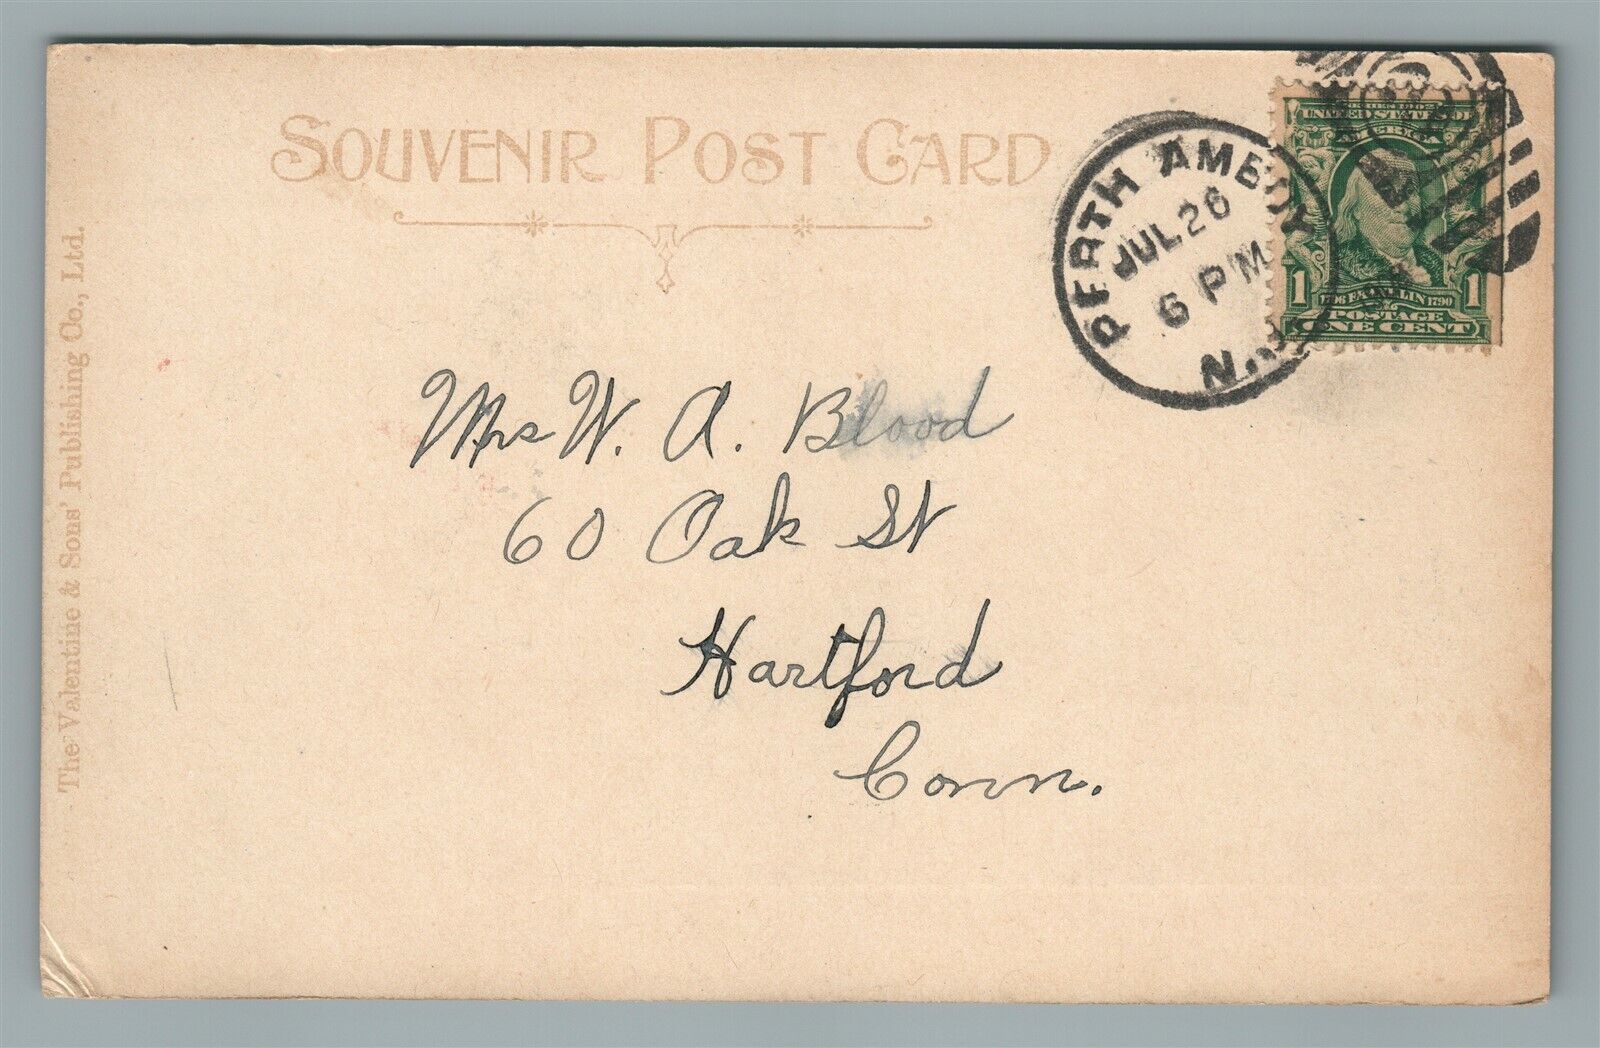 SOUVENIR POST CARD
PERTH AMBOY
JUL 26
6 PM
N.J.
SERIES 1902
UNITED STATES OF
AMERICA
1 1706 FRANKLIN 1790 1
POSTAGE
ONE CENT
Mrs W. A. Blood
60 Oak St
Hartford
Conn.
The Valentine & Sons' Publishing Co., Ltd.